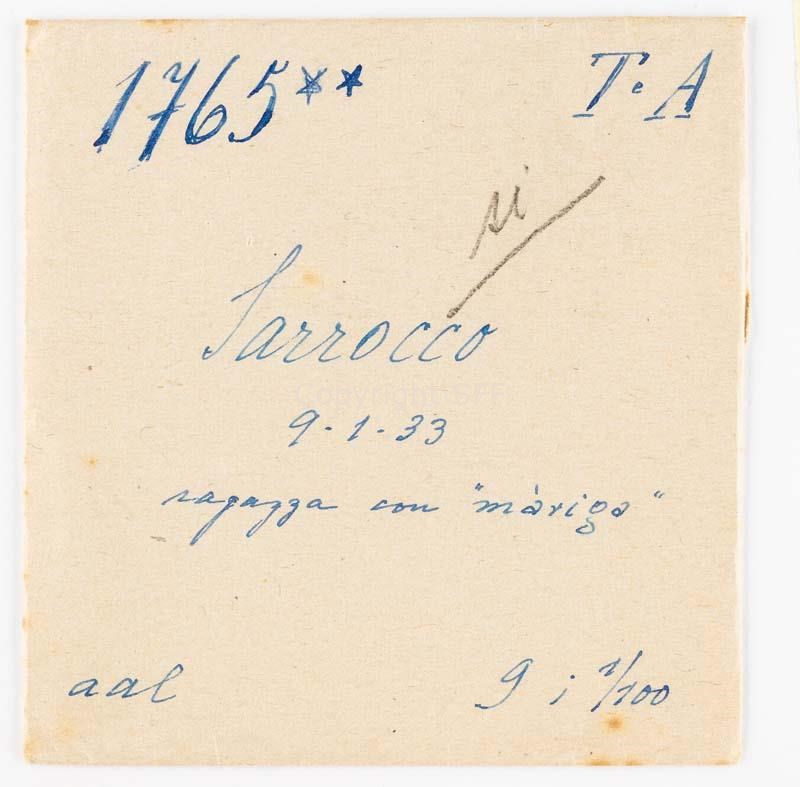 1765** T. A
si
Sarrocco
9-1-33
ragazza con "màriga"
aal 9 i 1/100